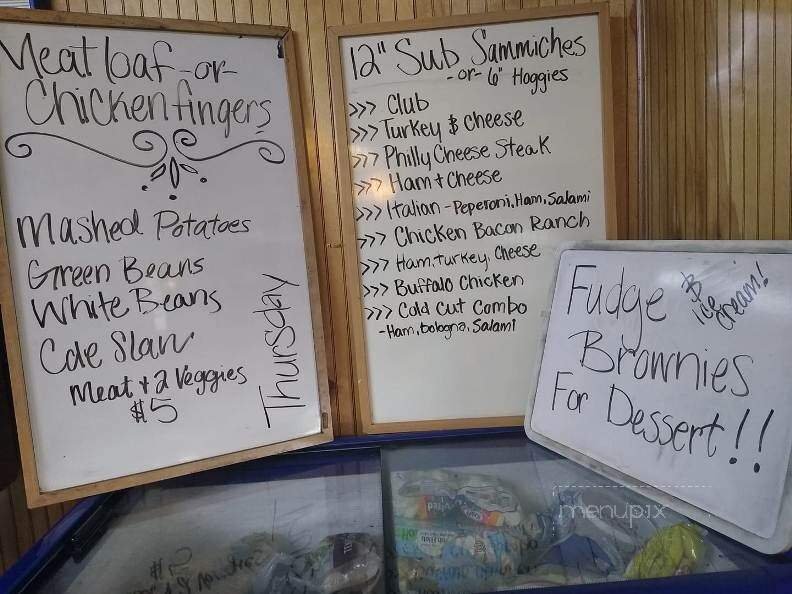 Meatloaf -or-
Chicken fingers
Mashed Potatoes
Green Beans
White Beans
Cole Slaw
Meat + 2 Veggies
$5
Thursday
12" Sub Sammiches
-or- 6" Hoggies
>>> Club
>>> Turkey & Cheese
>>> Philly Cheese Steak
>>> Ham + Cheese
>>> Italian - Peperoni, Ham, Salami
>>> Chicken Bacon Ranch
>>> Ham, turkey, Cheese
>>> Buffalo Chicken
>>> Cold Cut Combo
-Ham, bologna, Salami
Fudge & ice cream!
Brownies
For Dessert!!
menupix